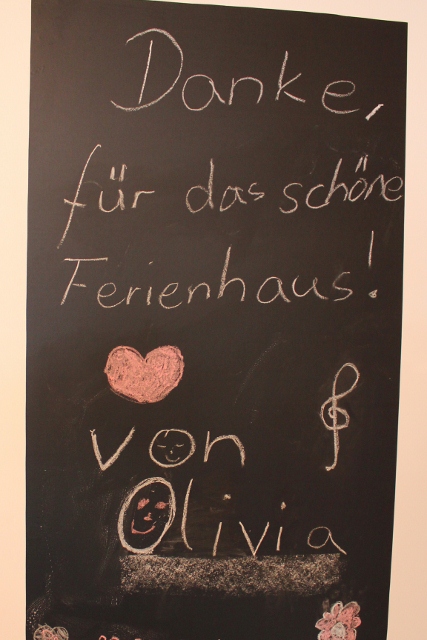 Danke,
für das schöne
Ferienhaus!
von
Olivia